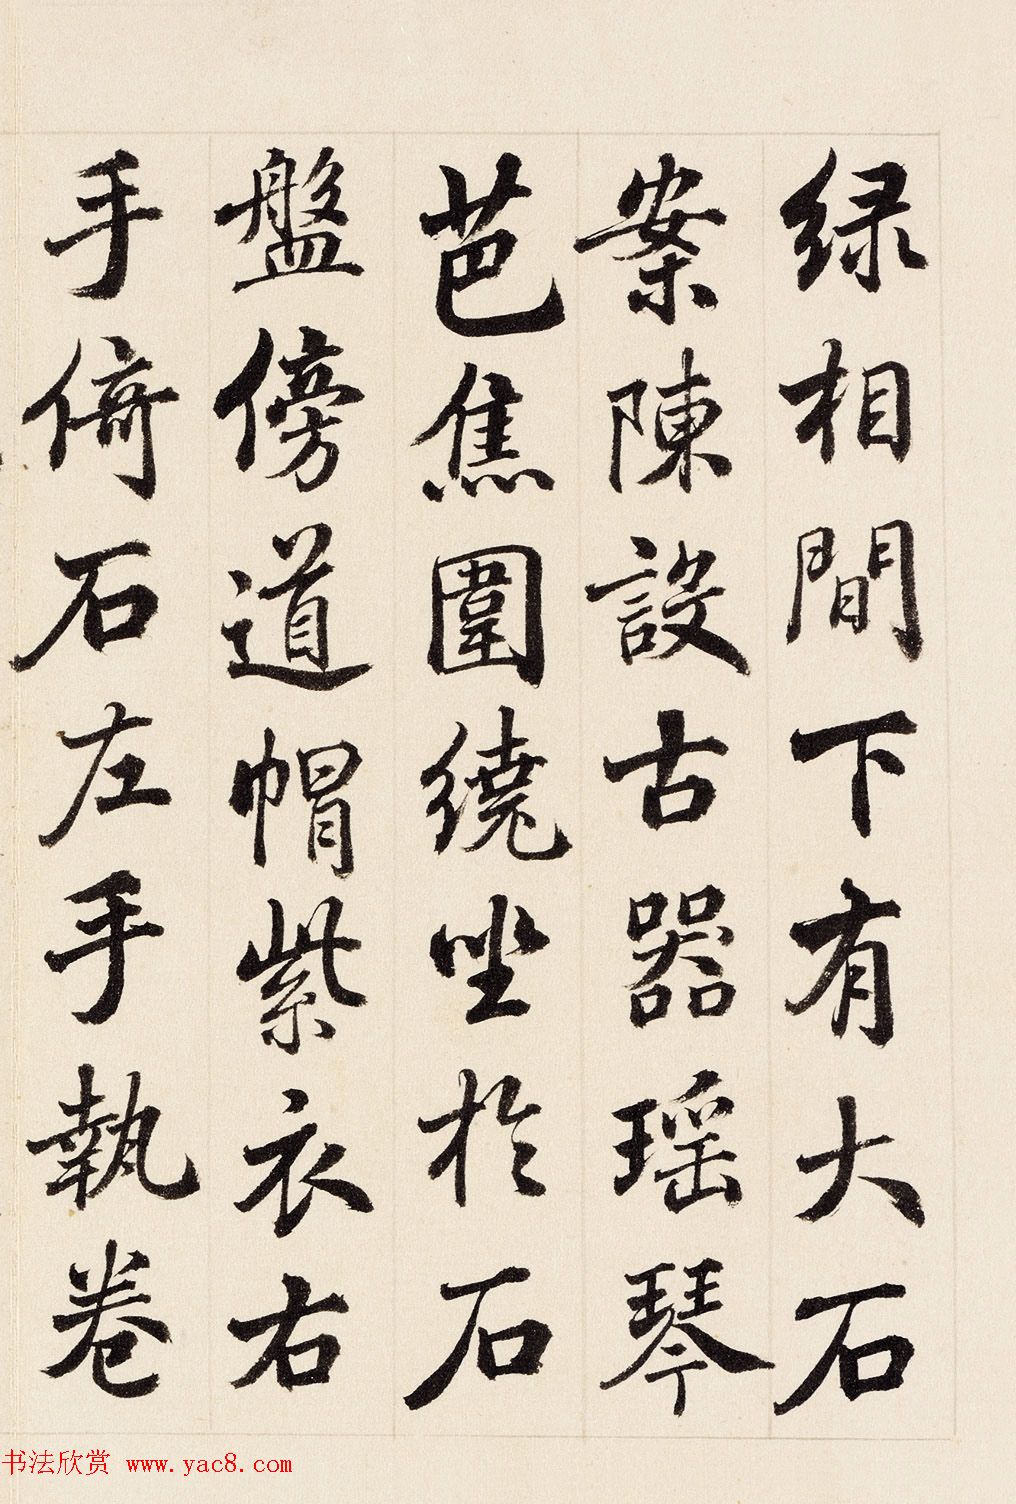 绿相間下有大石
案陳設古器瑶琴
芭焦圍繞坐於石
盤傍道帽紫衣右
手倚石左手執卷
书法欣赏 www.yac8.com